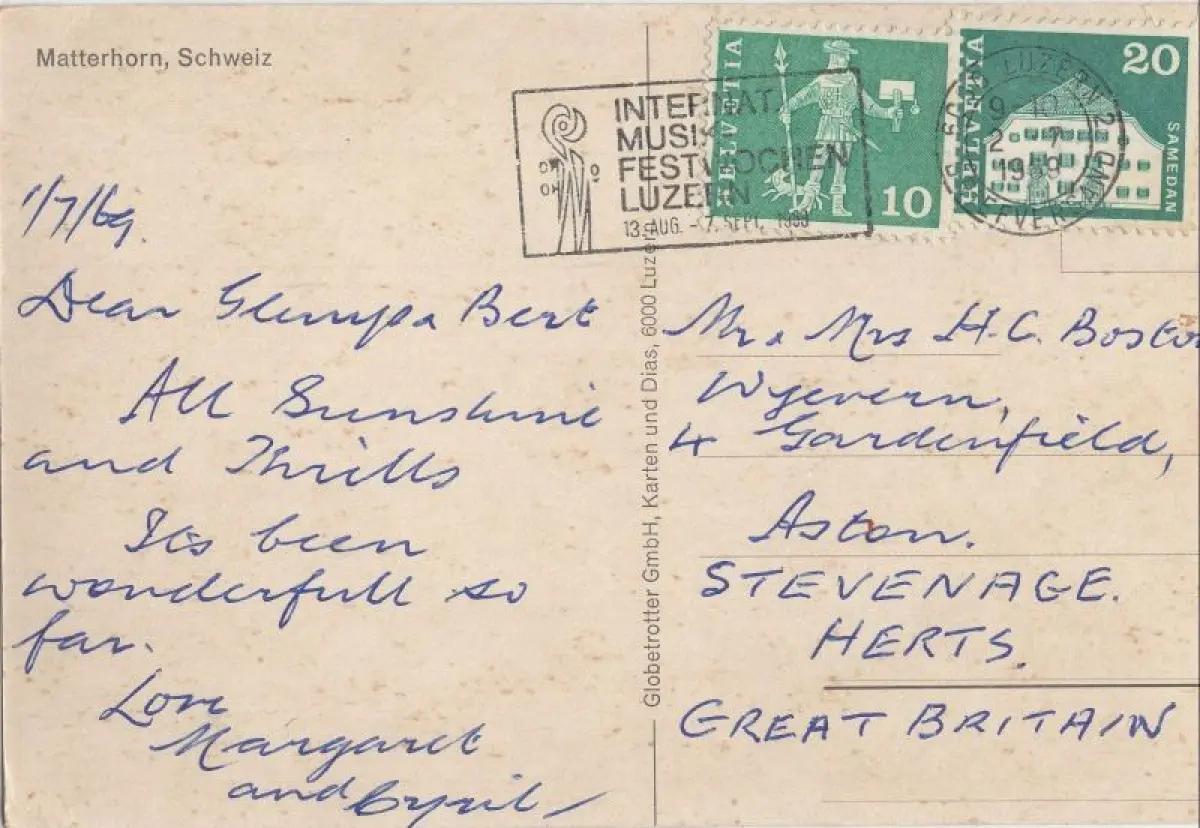 Matterhorn, Schweiz
1/7/69.
Dear Glemp & Bert
All Sunshine
and Thrills
Its been
wonderfull so
far.
Love
Margaret
and Cyril
Globetrotter GmbH, Karten und Dias, 6000 Luzern
INTERNAT.
MUSIK
FESTWOCHEN
LUZERN
13. AUG. - 7. SEPT. 1969
HELVETIA
10
HELVETIA
20
SAMEDAN
LUZERN 2
2 - 7
1969
Mr & Mrs H.C. Bosto
Wyevern,
4 Gardenfield,
Aston.
STEVENAGE.
HERTS.
GREAT BRITAIN